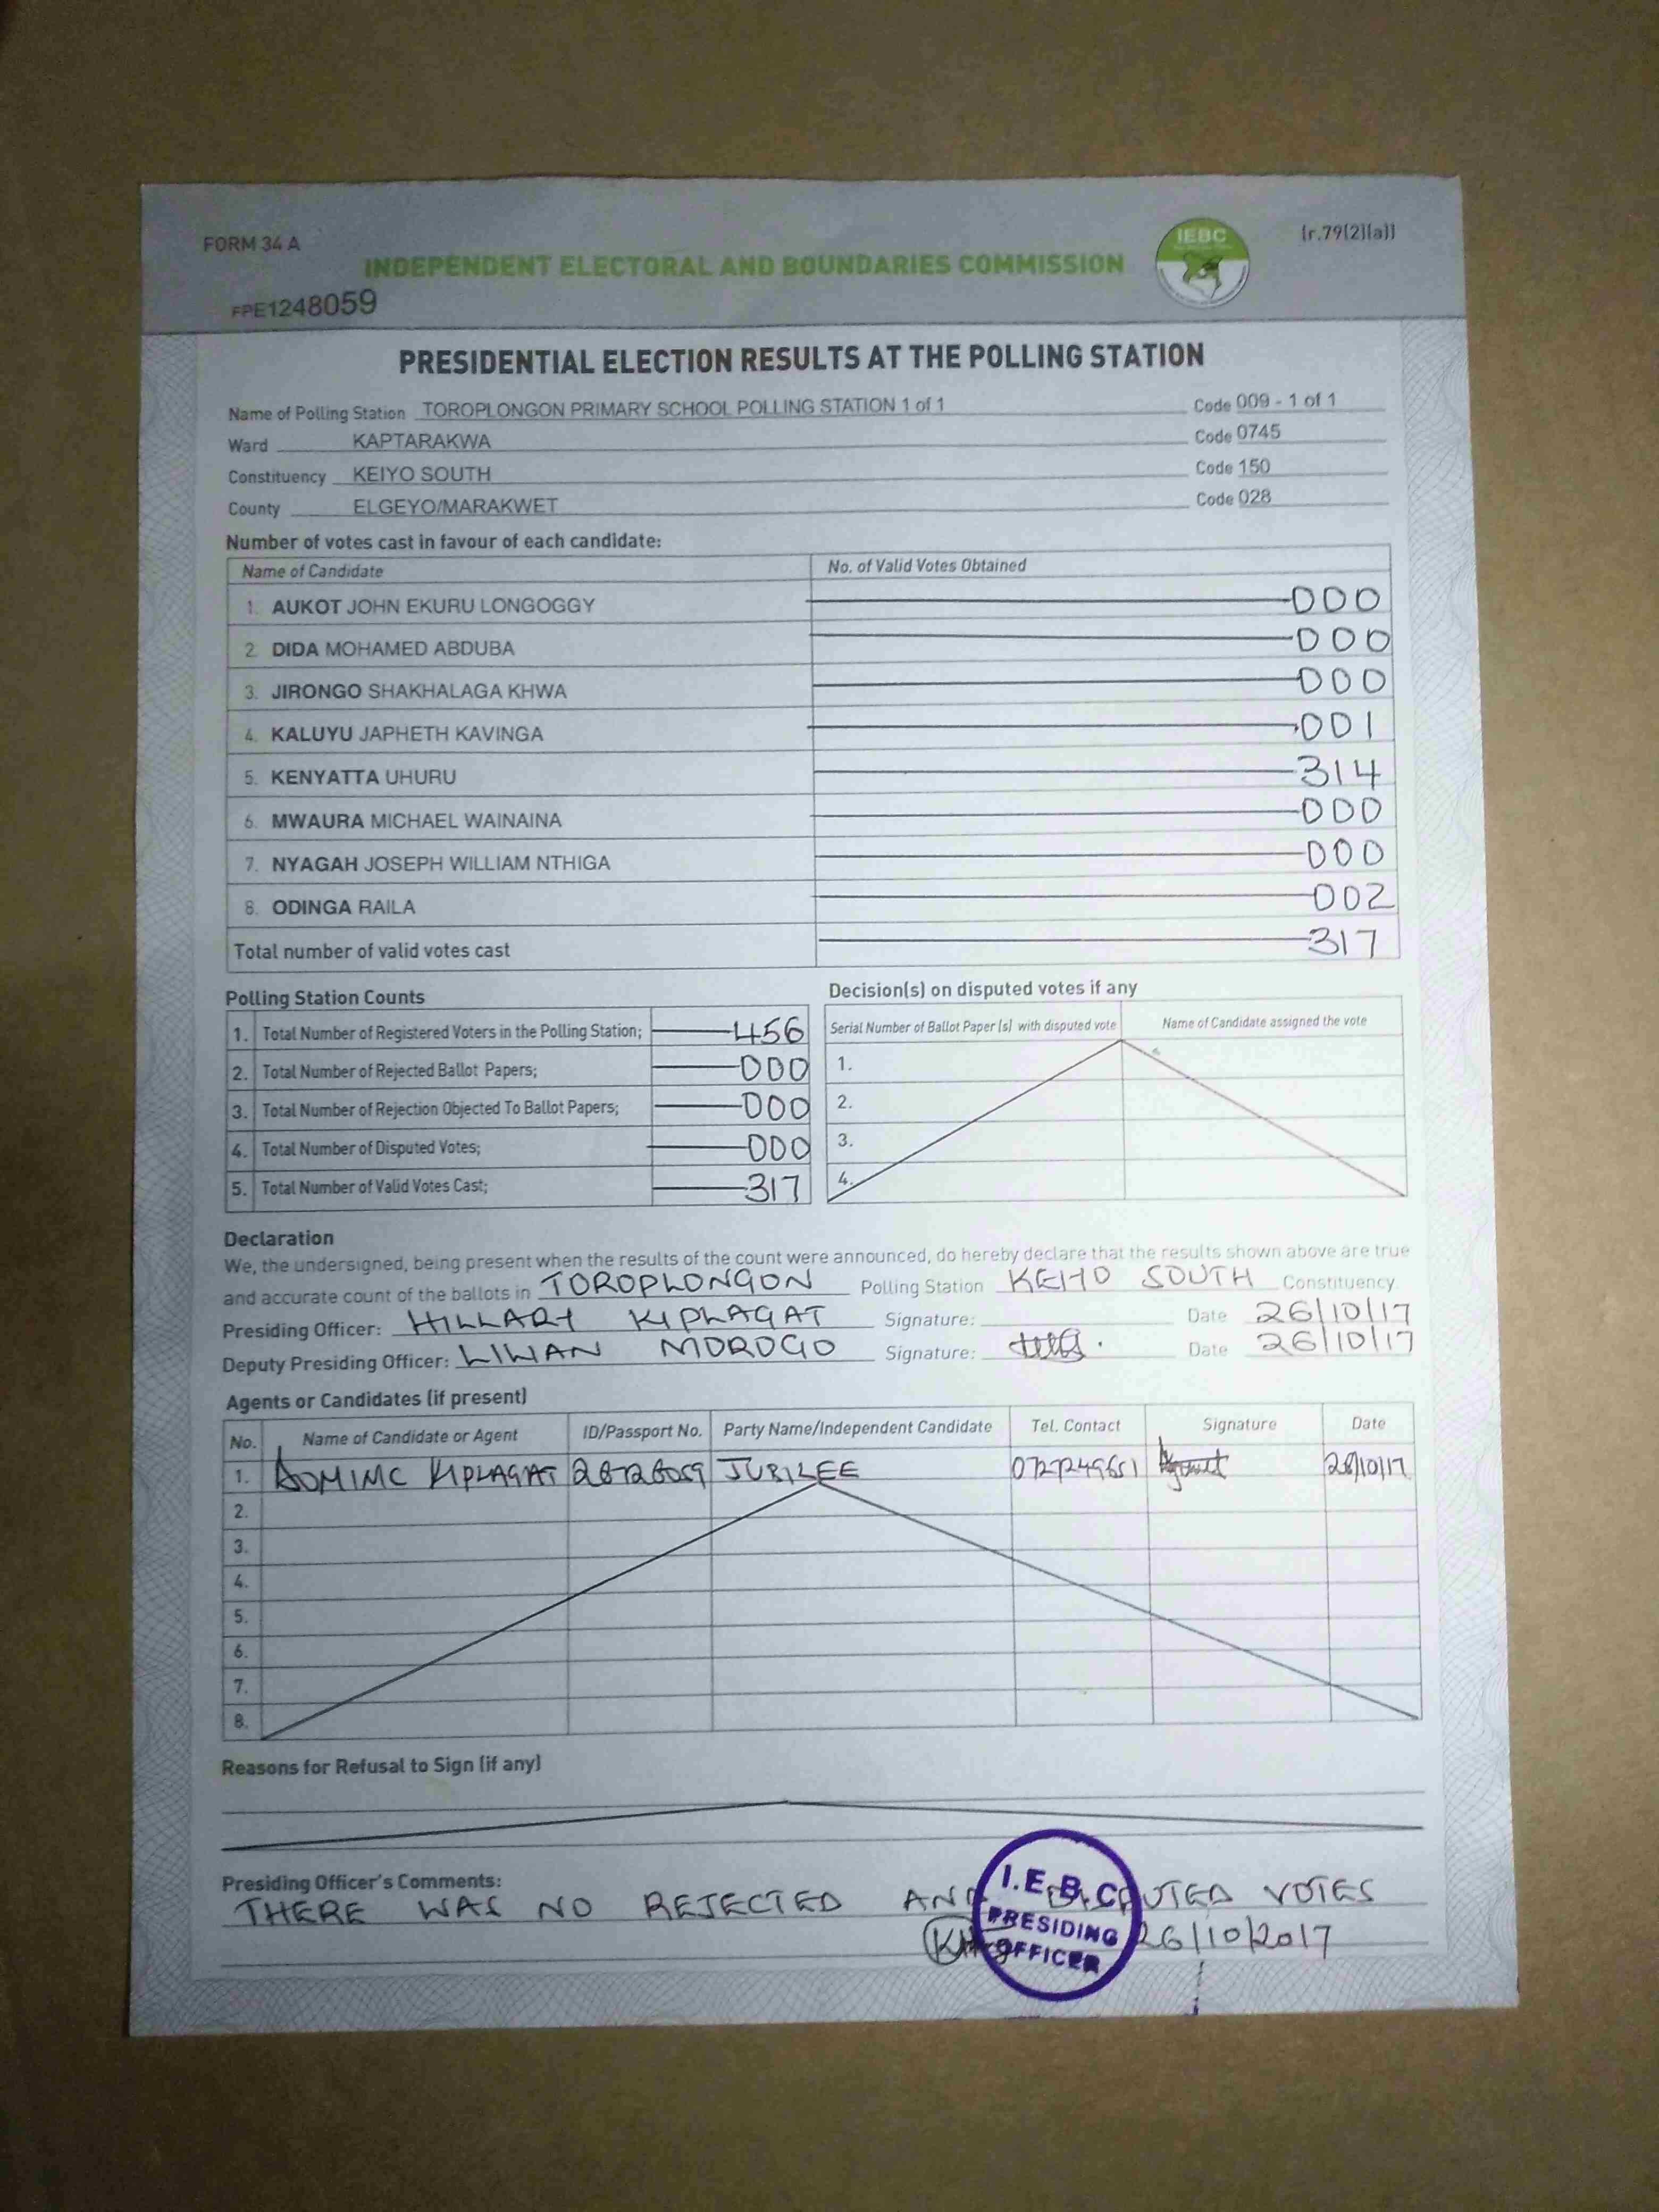 FORM 34 A
INDEPENDENT ELECTORAL AND BOUNDARIES COMMISSION
IEBC
(r.79(2)(a))
FPE1248059
PRESIDENTIAL ELECTION RESULTS AT THE POLLING STATION
Name of Polling Station TOROPLONGON PRIMARY SCHOOL POLLING STATION 1 of 1 Code 009 - 1 of 1
Ward KAPTARAKWA Code 0745
Constituency KEIYO SOUTH Code 150
County ELGEYO/MARAKWET Code 028
Number of votes cast in favour of each candidate:
Name of Candidate No. of Valid Votes Obtained
1. AUKOT JOHN EKURU LONGOGGY 000
2. DIDA MOHAMED ABDUBA 000
3. JIRONGO SHAKHALAGA KHWA 000
4. KALUYU JAPHETH KAVINGA 001
5. KENYATTA UHURU 314
6. MWAURA MICHAEL WAINAINA 000
7. NYAGAH JOSEPH WILLIAM NTHIGA 000
8. ODINGA RAILA 002
Total number of valid votes cast 317
Polling Station Counts
1. Total Number of Registered Voters in the Polling Station; 456
2. Total Number of Rejected Ballot Papers; 000
3. Total Number of Rejection Objected To Ballot Papers; 000
4. Total Number of Disputed Votes; 000
5. Total Number of Valid Votes Cast; 317
Decision(s) on disputed votes if any
Serial Number of Ballot Paper (s) with disputed vote Name of Candidate assigned the vote
1.
2.
3.
4.
Declaration
We, the undersigned, being present when the results of the count were announced, do hereby declare that the results shown above are true
and accurate count of the ballots in TOROPLONGON Polling Station KEIYO SOUTH Constituency
Presiding Officer: HILLARY KIPLAGAT Signature: Date 26/10/17
Deputy Presiding Officer: LIWAN MOROGO Signature: Date 26/10/17
Agents or Candidates (if present)
No. Name of Candidate or Agent ID/Passport No. Party Name/Independent Candidate Tel. Contact Signature Date
1. KIPLAGAT JUBILEE 26/10/17
2.
3.
4.
5.
6.
7.
8.
Reasons for Refusal to Sign (if any)
Presiding Officer's Comments:
THERE WAS NO REJECTED AND DISPUTED VOTES
26/10/2017
I.E.B.C
PRESIDING
OFFICER